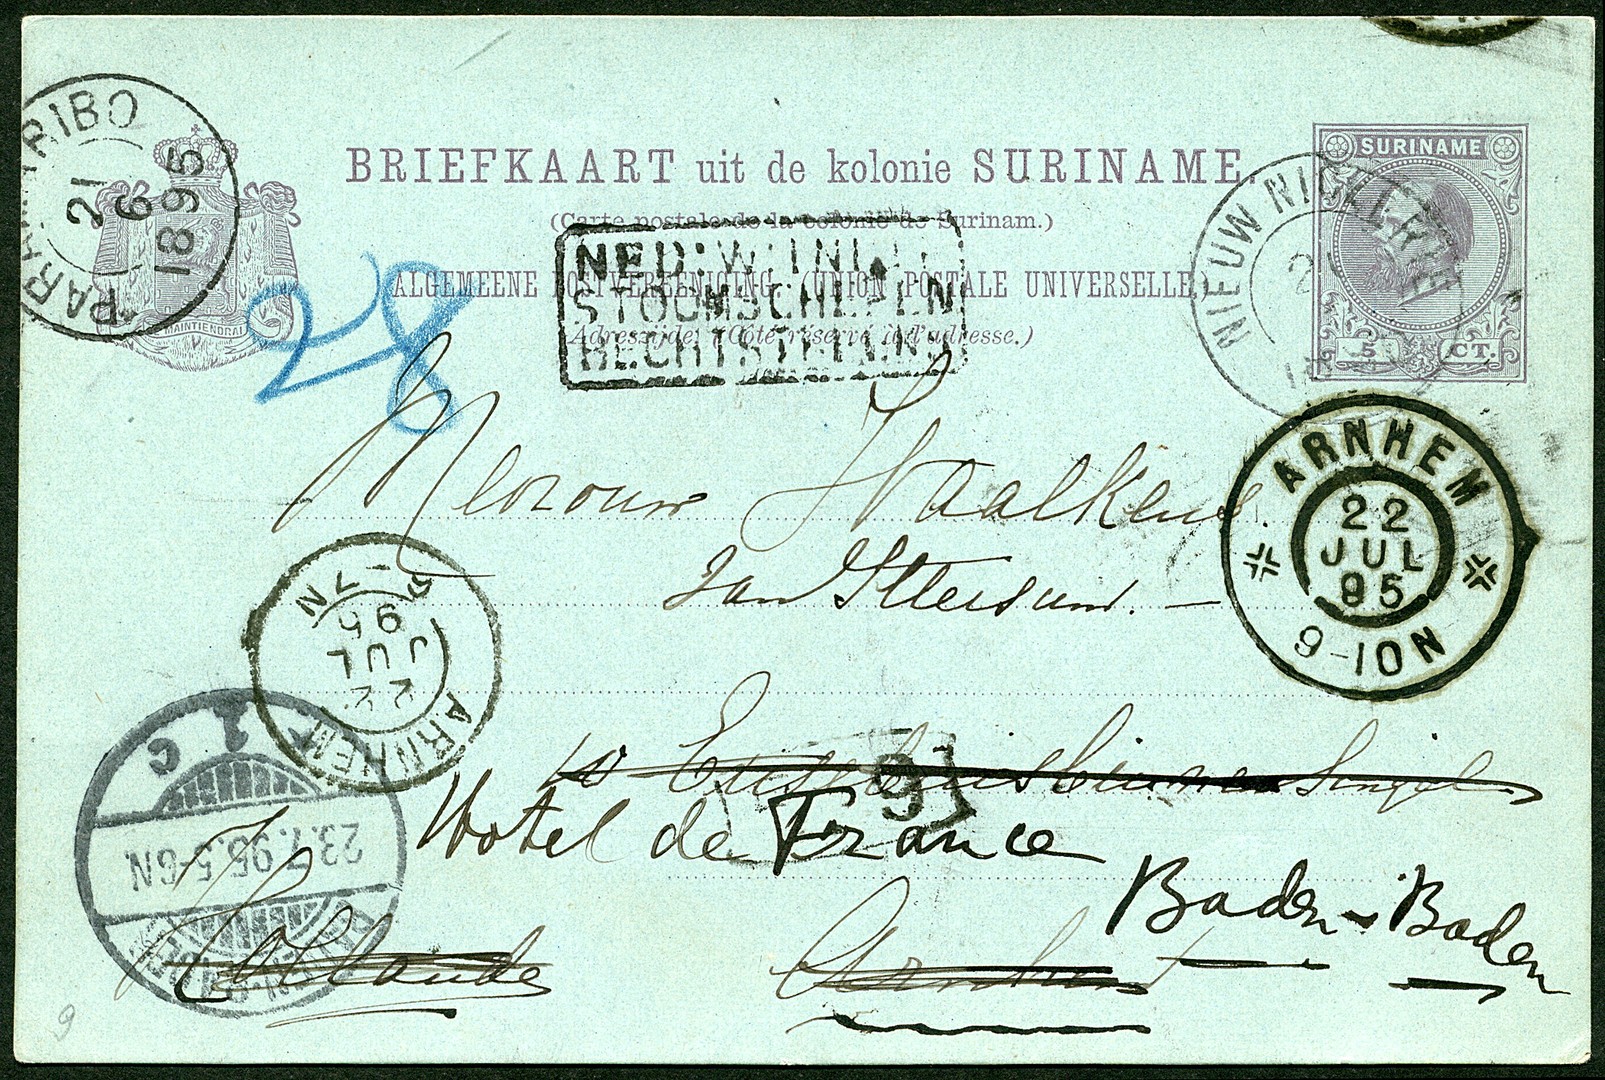 PARAMARIBO
21
6
1895
MAINTIENDRAI
BRIEFKAART uit de kolonie SURINAME.
(Carte postale de la colonie de Surinam.)
ALGEMEENE POSTVEREENIGING (UNION POSTALE UNIVERSELLE)
Adreszijde. (Côté réservé à l'adresse.)
NED: W: IND:
STOOMSCHEPEN
RECHTSTREEKS
SURINAME
5 CT.
NIEUW NICKERIE
28
ARNHEM
22
JUL
95
9-10N
Mevrouw Waalkens
van Ittersum.
ARNHEM
22
JUL
95
-7N
10 Singel
9
Hotel de France
Baden-Baden
Hollande
Arnhem
1
c
23.7.95.5-6N
9